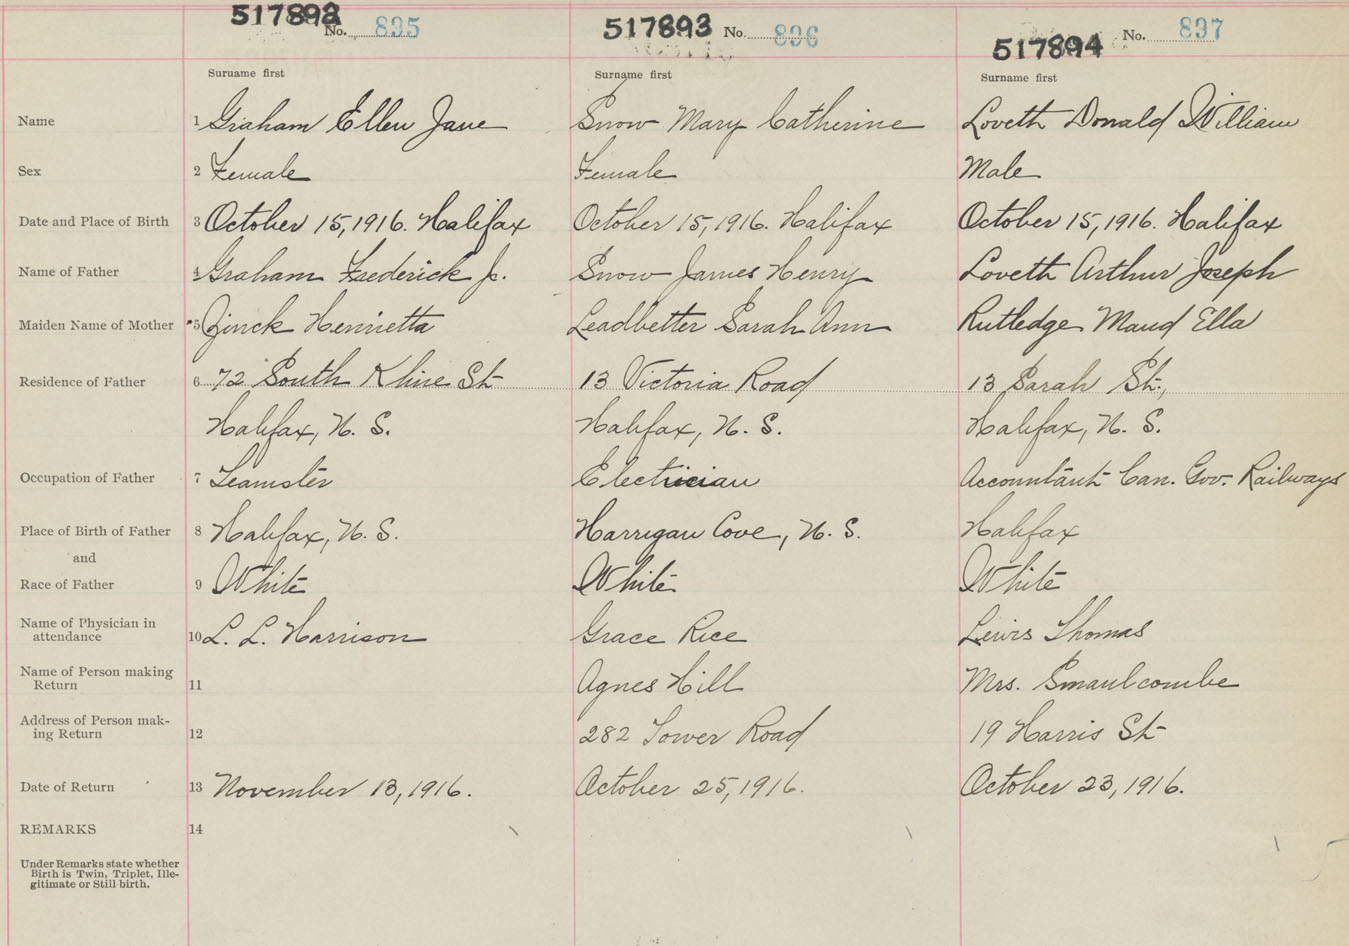 517892 No. 835 517893 No. 836 517894 No. 837
Surname first Surname first Surname first
Name 1 Graham Ellen Jane Snow Mary Catherine Loveth Donald William
Sex 2 Female Female Male
Date and Place of Birth 3 October 15, 1916. Halifax October 15, 1916. Halifax October 15, 1916. Halifax
Name of Father 4 Graham Frederick J. Snow James Henry Loveth Arthur Joseph
Maiden Name of Mother 5 Zinck Henrietta Leadbetter Sarah Ann Rutledge Maud Ella
Residence of Father 6 72 South Kline St 13 Victoria Road 13 Sarah St.,
Halifax, N. S. Halifax, N. S. Halifax, N. S.
Occupation of Father 7 Teamster Electrician Accountant Can. Gov. Railways
Place of Birth of Father 8 Halifax, N. S. Harrigan Cove, N. S. Halifax
and
Race of Father 9 White White White
Name of Physician in
attendance 10 L. L. Harrison Grace Rice Lewis Thomas
Name of Person making
Return 11 Agnes Hill Mrs. Smaulcombe
Address of Person mak-
ing Return 12 282 Tower Road 19 Harris St
Date of Return 13 November 13, 1916. October 25, 1916. October 23, 1916.
REMARKS 14
Under Remarks state whether
Birth is Twin, Triplet, Ille-
gitimate or Still birth.